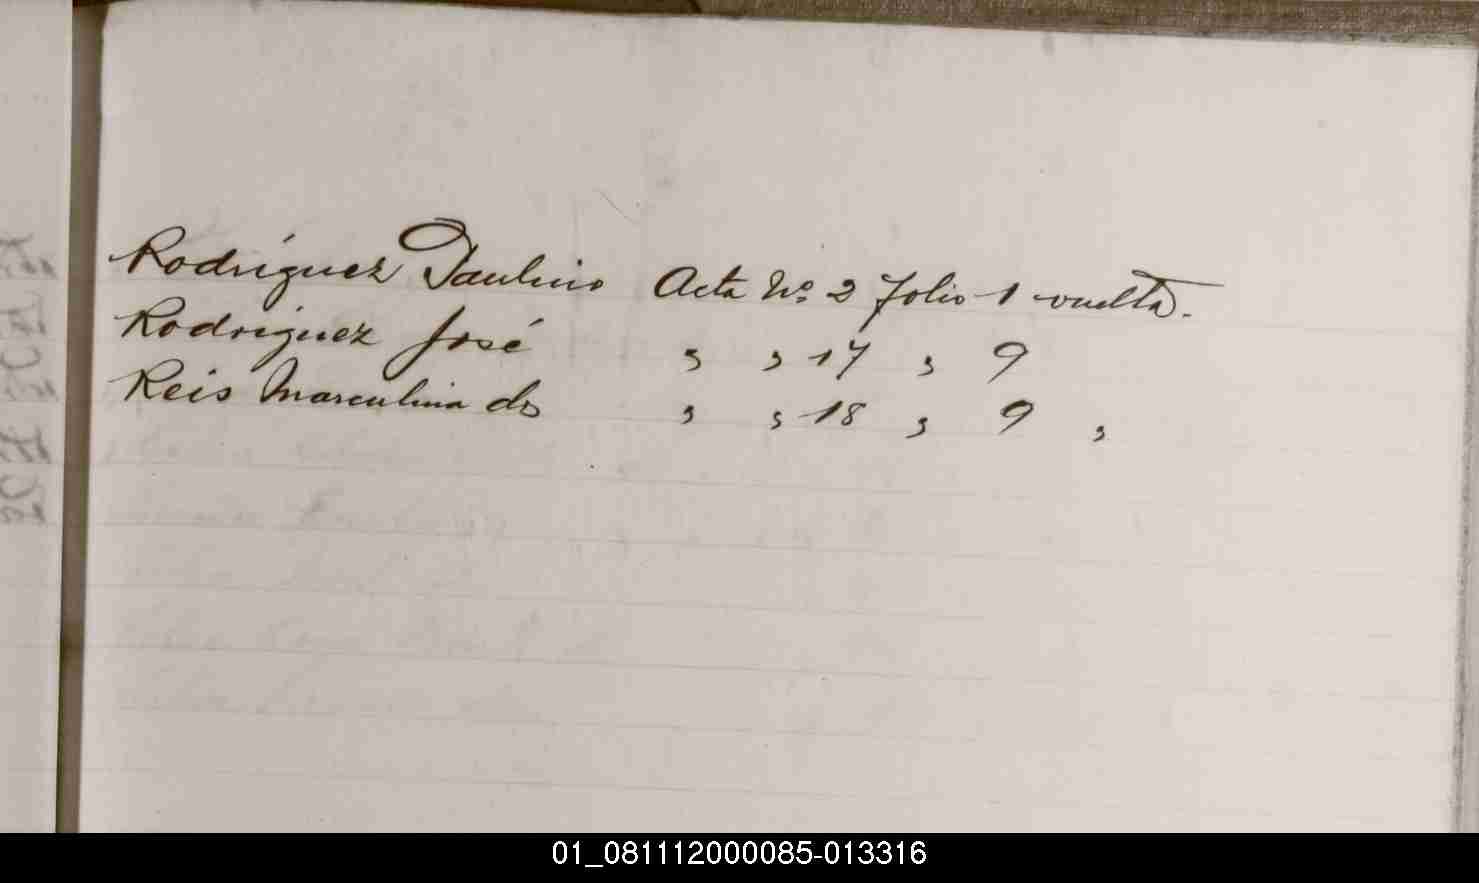 Rodríguez Paulino Acta Nº 2 folio 1 vuelta.
Rodríguez José " " 17 " 9
Reis Marculina do " " 18 " 9 "
01_081112000085-013316